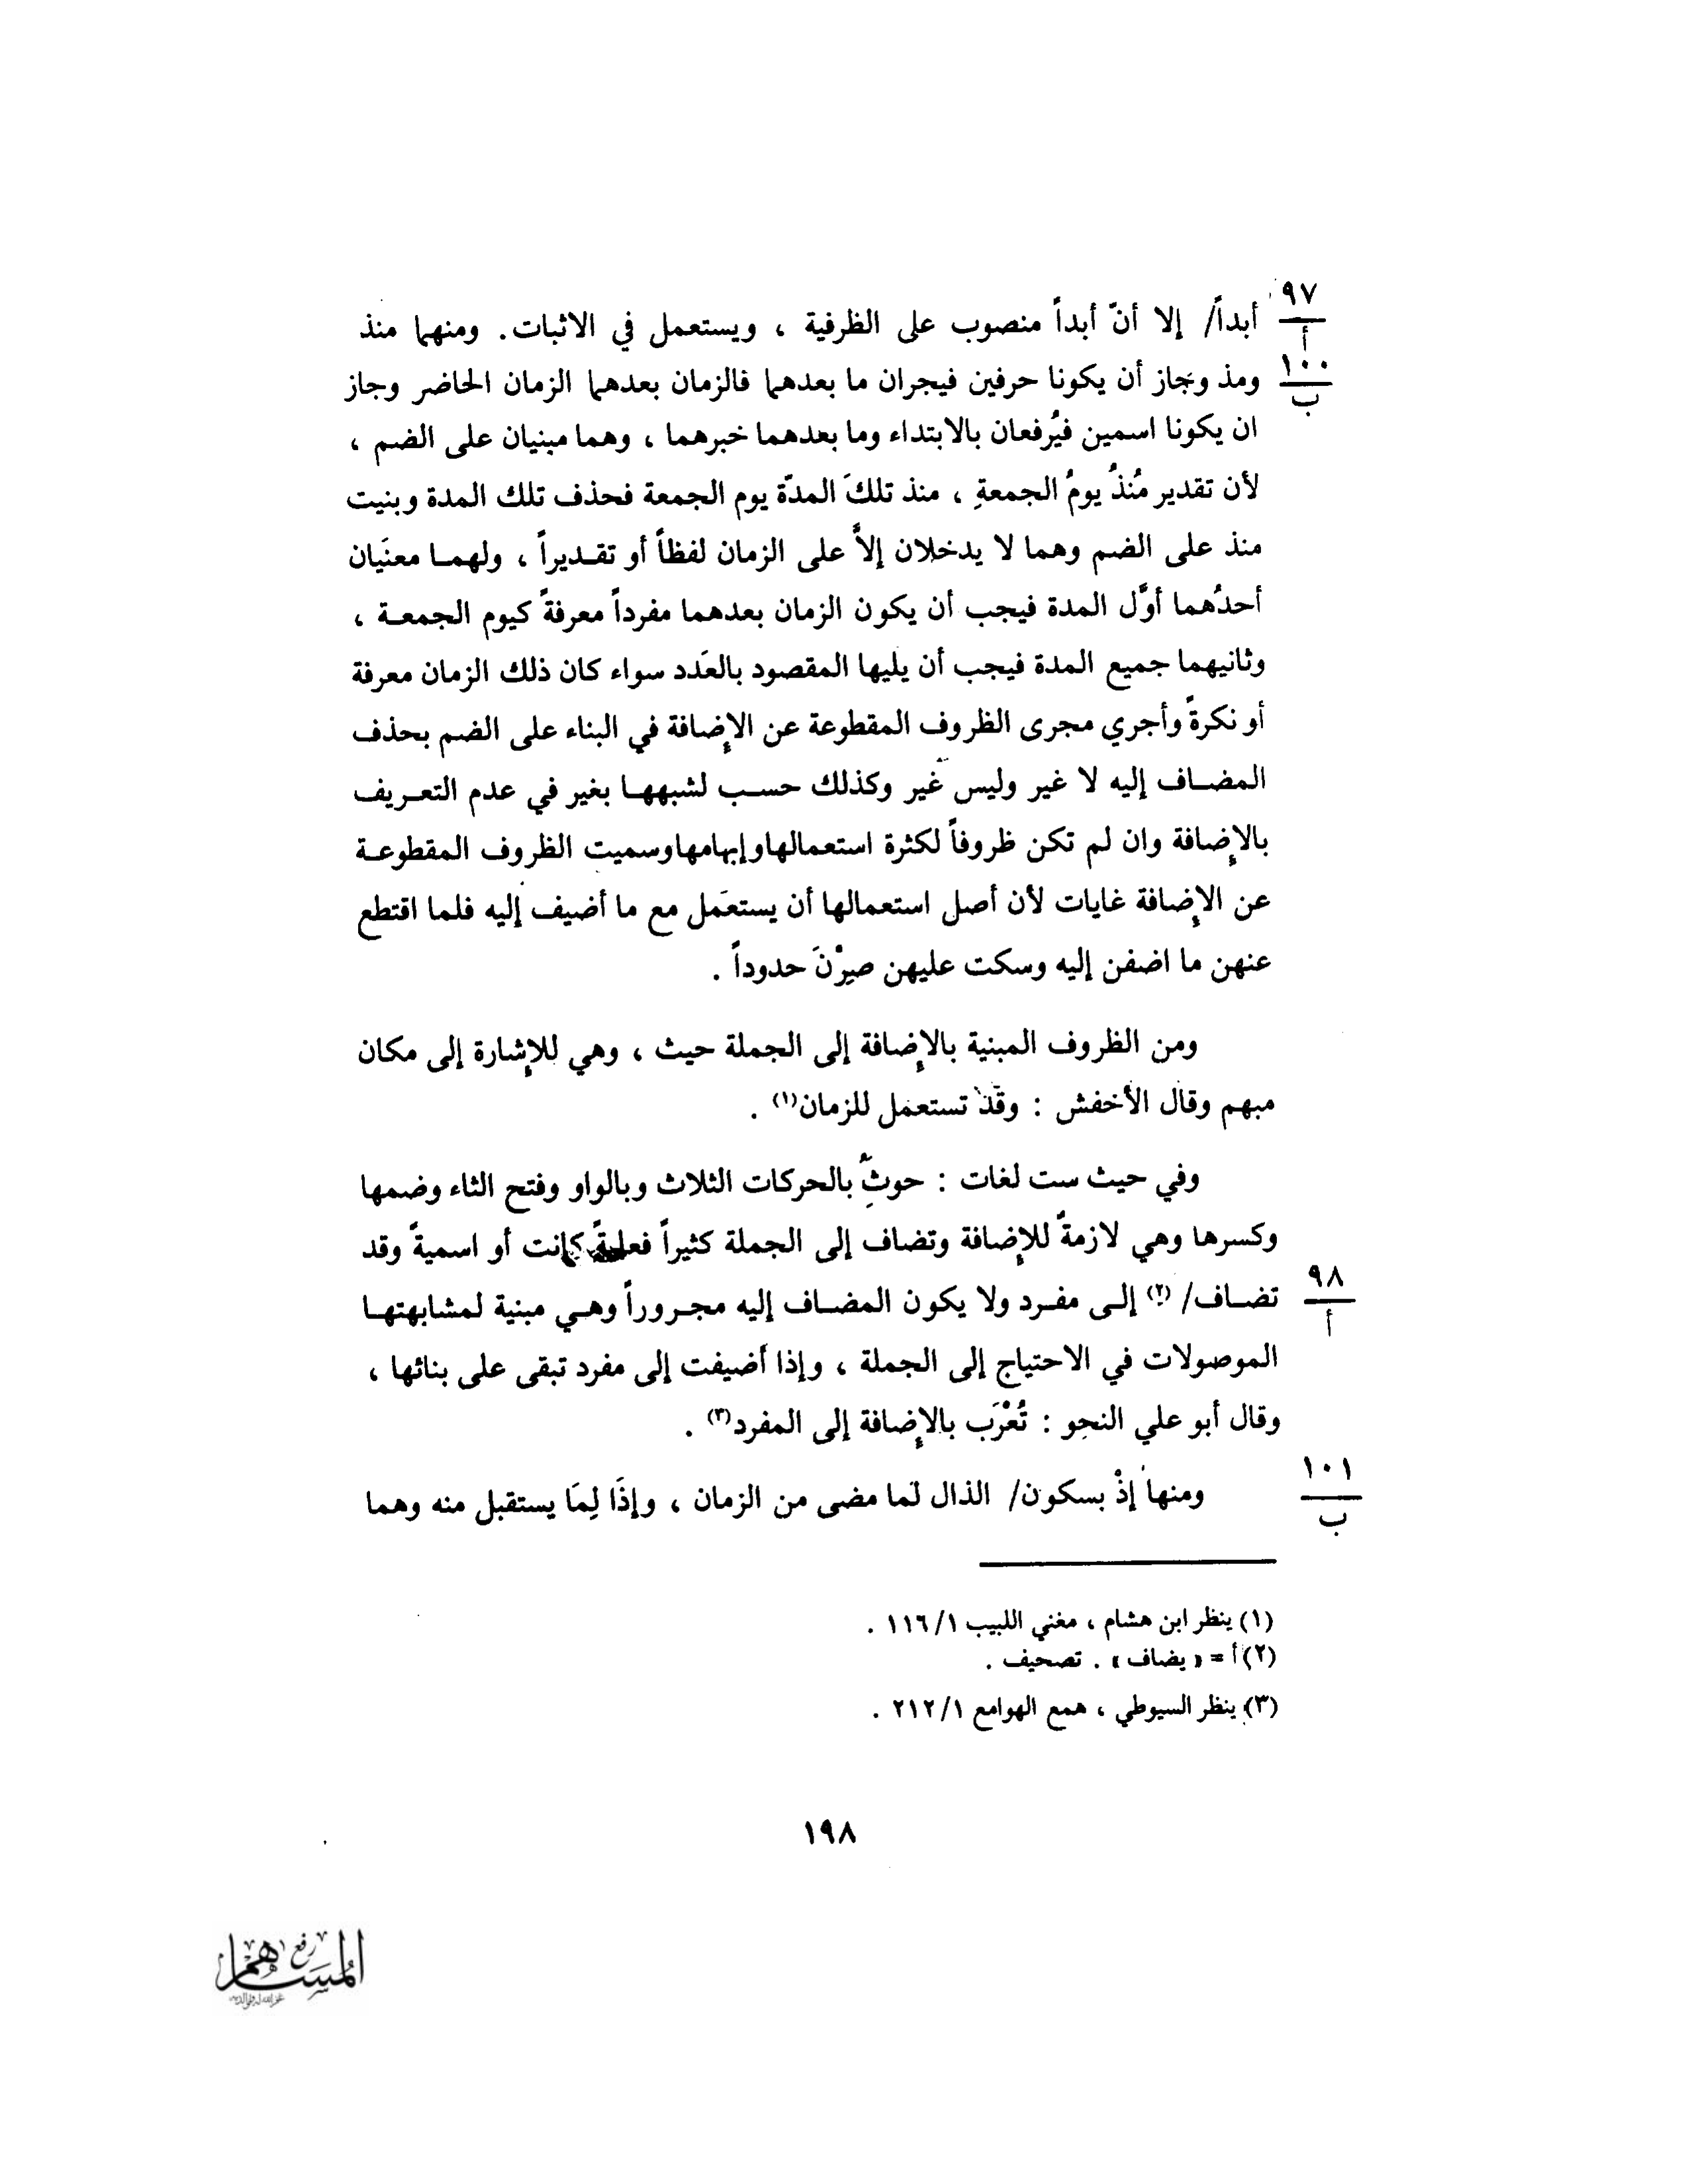 ٩٧
أ
أبداً/ إلا أنّ أبداً منصوب على الظرفية ، ويستعمل في الاثبات. ومنهما منذ
١٠٠
ب
ومذ وجاز أن يكونا حرفين فيجران ما بعدهما فالزمان بعدهما الزمان الحاضر وجاز
ان يكونا اسمين فيُرفعان بالابتداء وما بعدهما خبرهما ، وهما مبنيان على الضم ،
لأن تقدير مُنذُ يومُ الجمعةِ ، منذ تلكَ المدّة يوم الجمعة فحذف تلك المدة وبنيت
منذ على الضم وهما لا يدخلان إلاَّ على الزمان لفظاً أو تقـديراً ، ولهمـا معنَيان
أحدُهما أوَّل المدة فيجب أن يكون الزمان بعدهما مفرداً معرفةً كيوم الجمعـة ،
وثانيهما جميع المدة فيجب أن يليها المقصود بالعَدد سواء كان ذلك الزمان معرفة
أو نكرةً وأجري مجرى الظروف المقطوعة عن الإضافة في البناء على الضم بحذف
المضـاف إليه لا غير وليس غير وكذلك حسـب لشبههـا بغير في عدم التعـريف
بالإضافة وان لم تكن ظروفاً لكثرة استعمالهاوإبهامهاوسميت الظروف المقطوعـة
عن الإضافة غايات لأن أصل استعمالها أن يستعمَل مع ما أضيف إليه فلما اقتطع
عنهن ما اضفن إليه وسكت عليهن صِرْنَ حدوداً .
ومن الظروف المبنية بالإضافة إلى الجملة حيث ، وهي للإشارة إلى مكان
مبهم وقال الأخفش : وقد تستعمل للزمان(١) .
وفي حيث ست لغات : حوث بالحركات الثلاث وبالواو وفتح الثاء وضمها
وكسرها وهي لازمةً للإضافة وتضاف إلى الجملة كثيراً فعليةً كانت أو اسميةً وقد
٩٨
أ
تضـاف/ (٢) إلـى مفـرد ولا يكون المضـاف إليه مجـروراً وهـي مبنية لمشابهتهـا
الموصولات في الاحتياج إلى الجملة ، وإذا أضيفت إلى مفرد تبقى على بنائها ،
وقال أبو علي النحو : تُعْرَب بالإضافة إلى المفرد(٣) .
١٠١
ب
ومنها إذْ بسكون/ الذال لما مضى من الزمان ، وإذَا لِمَا يستقبل منه وهما
(١) ينظر ابن هشام ، مغني اللبيب ١١٦/١ .
(٢) أ = « يضاف » . تصحيف .
(٣) ينظر السيوطي ، همع الهوامع ٢١٢/١ .
١٩٨
رفع
المساهم
غفر الله له ولوالديه